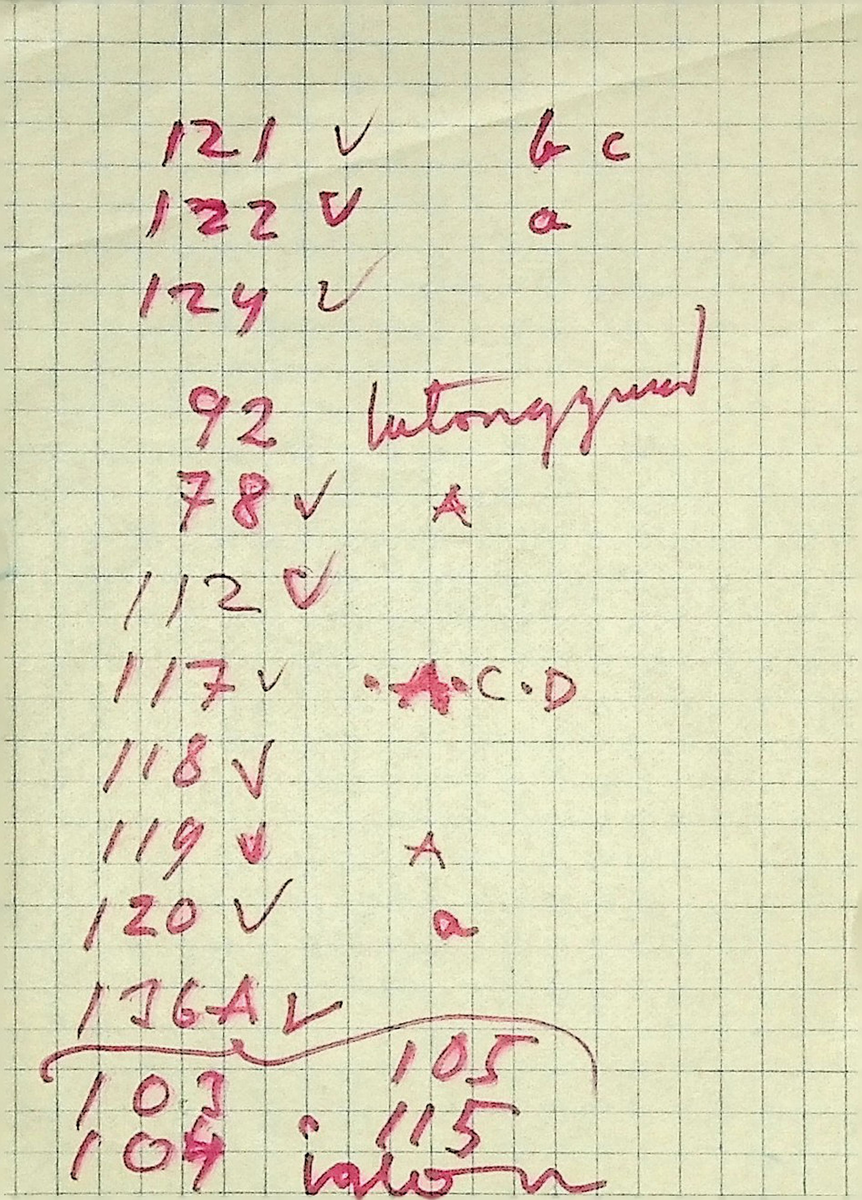 121 ✓ b c
122 ✓ a
124 ✓
92
78 ✓ A
112 ✓
117 ✓ · A · C · D
118 ✓
119 ✓ A
120 ✓ a
136A ✓
103 105
104 115